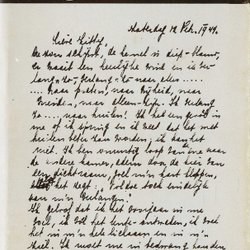 Zaterdag 12 Feb. 1944.
Lieve Kitty,
De zon schijnt, de hemel is diep-blauw,
er waait een heerlijke wind en ik ver-
lang zo - verlang zo - naar alles ....
.... Naar praten, naar vrijheid, naar
vrienden, naar alleen-zijn. Ik verlang
zo .... naar huilen! Ik heb een gevoel in
me of ik spring en ik weet dat het met
huilen beter zou worden; ik kan het
niet. Ik ben onrustig loop van de ene naar
de andere kamer, adem door de kier van
een dicht raam, voel m'n hart kloppen,
alsof het zegt: "Voldoe toch eindelijk
aan m'n verlangens."
Ik geloof dat ik het voorjaar in me
voel, ik voel het lente-ontwaken, ik voel
het in m'n hele lichaam en in m'n
ziel. Ik moet me in bedwang houden